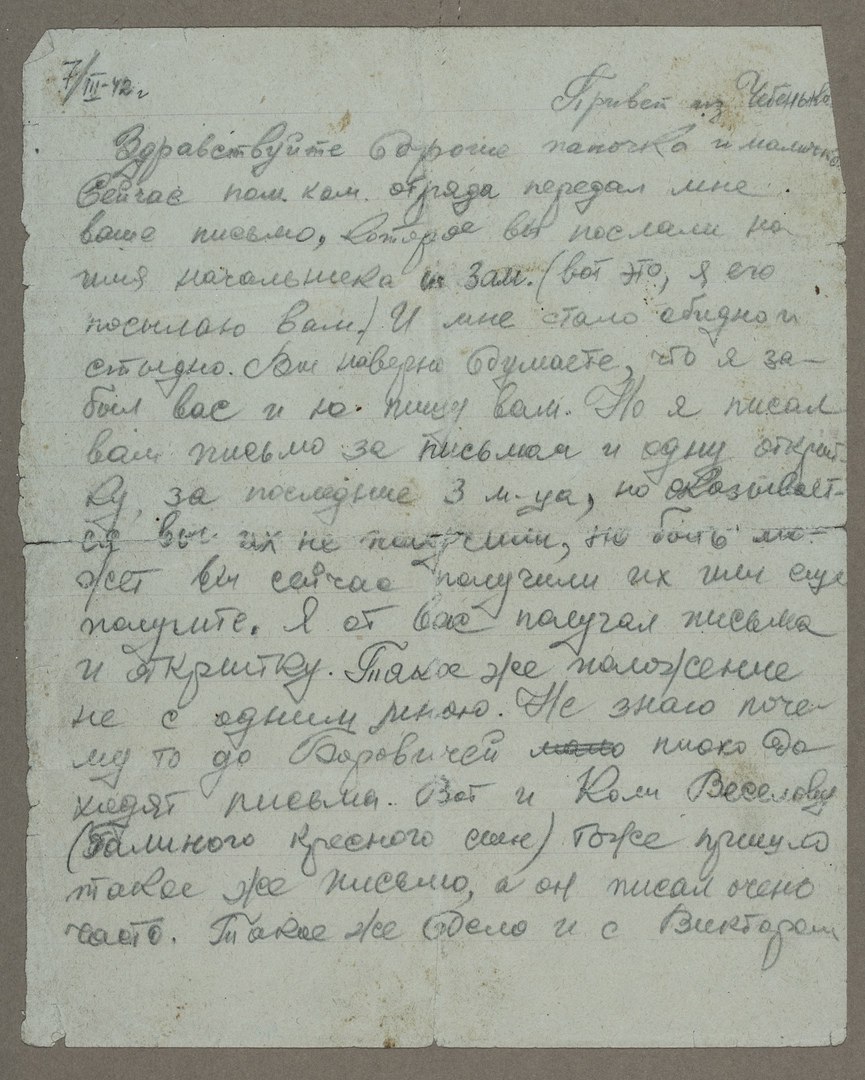 7/III-42 г
Привет из Чебеньков
Здравствуйте дорогие папочка и мамочка
Сейчас пом. ком. отряда передал мне
ваше письмо, которое вы послали на
имя начальника и зам. (вот это, я его
посылаю вам.) И мне стало обидно и
стыдно. Вы наверно думаете, что я за-
был вас и не пишу вам. Но я писал
вам письмо за письмом и одну открыт-
ку, за последние 3 м-ца, но оказывает-
ся вы их не получили, но быть мо-
жет вы сейчас получили их или еще
получите. Я от вас получал письма
и открытку. Такое же положение
не с одним мною. Не знаю поче-
му то до Боровичей плохо до-
ходят письма. Вот и Коли Веселову
(Галиного кресного сын) тоже пришло
такое же письмо, а он писал очень
часто. Такое же дело и с Виктором